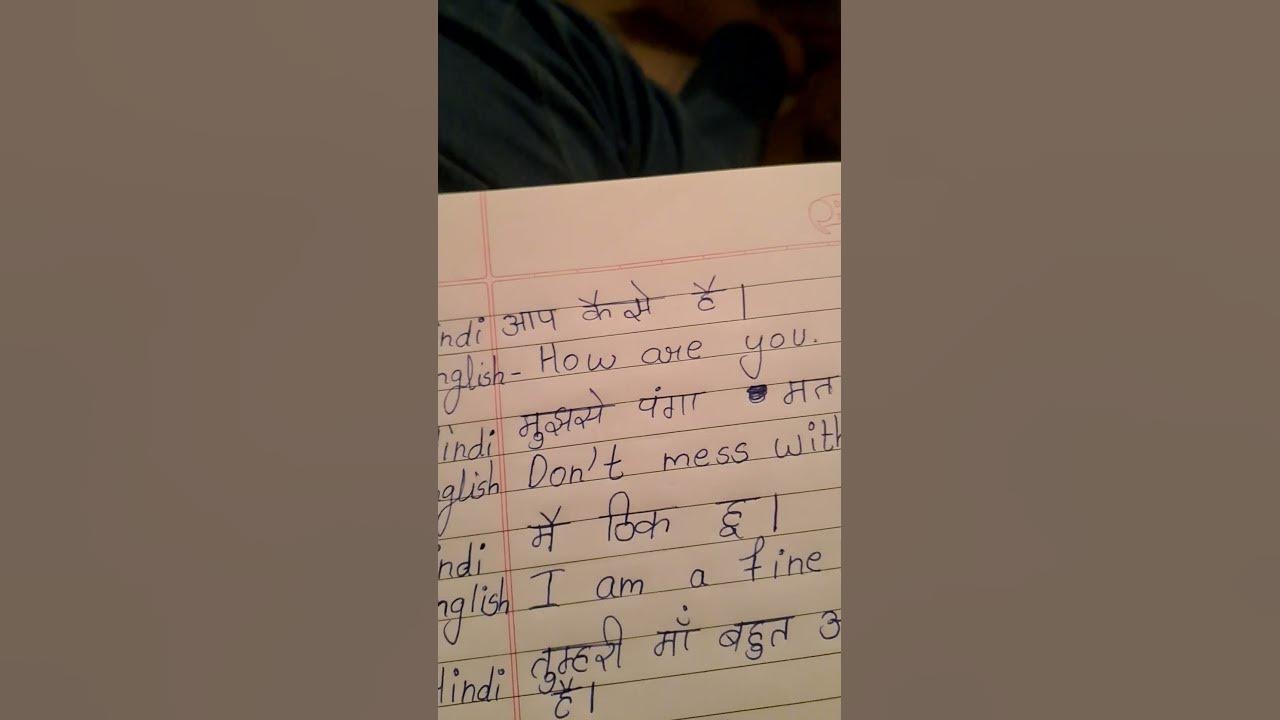 ndi आप कैसे है।
nglish- How are you.
indi मुझसे पंगा मत
glish Don't mess with
ndi मै ठिक हू।
nglish I am a fine
Hindi तुम्हरी माँ बहुत अ
है।